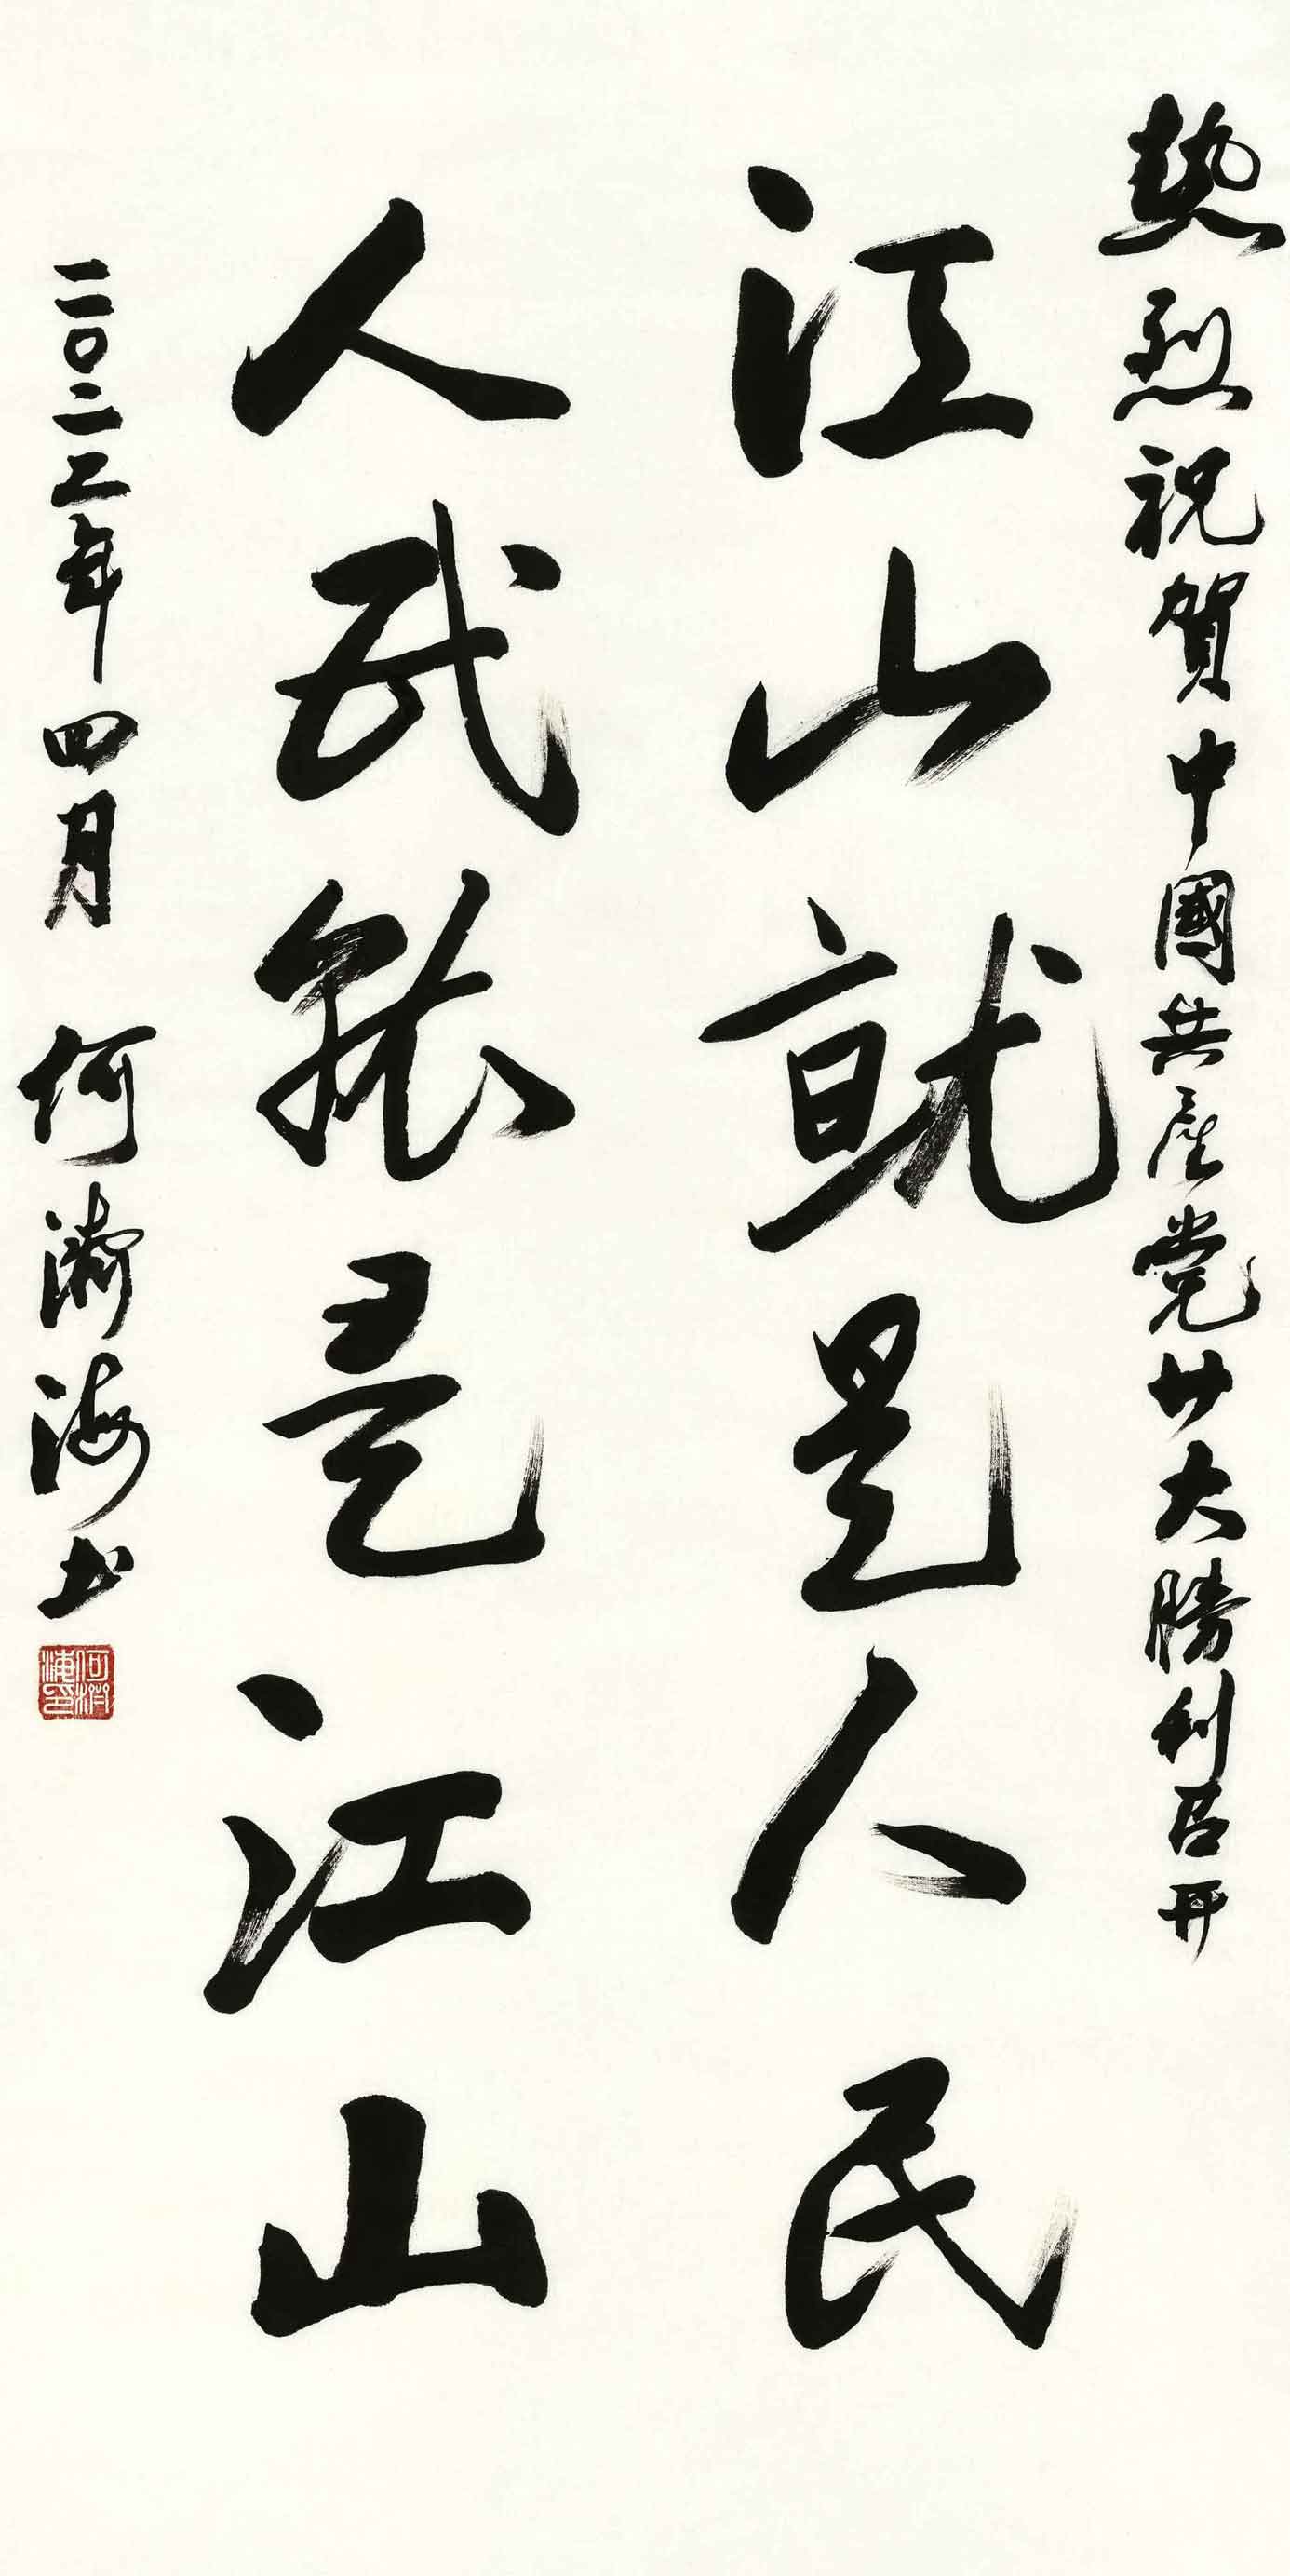 热烈祝賀中國共産党廿大勝利召开
江山就是人民
人民就是江山
二〇二二年四月 何濟海书